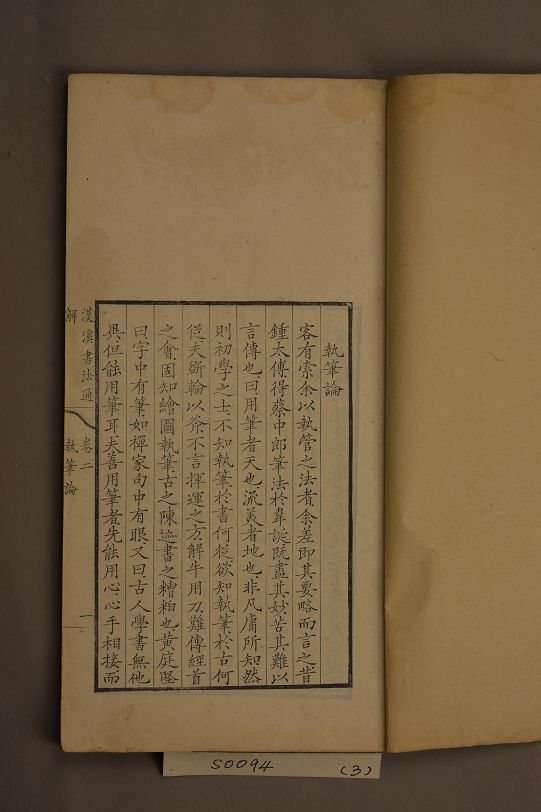 執筆論
客有索余以執管之法者余差即其要略而言之昔
鍾太傅得蔡中郎筆法於韋誕既盡其妙苦其難以
言傳也曰用筆者天也流美者地也非凡庸所知然
則初學之士不知執筆於書何從欲知執筆於古何
從夫斵輪以斧不言揮運之方解牛用刀難傳經首
之會固知繪圖執筆古之陳迹書之糟粕也黃庭堅
曰字中有筆如禪家句中有眼又曰古人學書無他
異但能用筆耳夫善用筆者先能用心心手相接而
漢溪書法通
解
卷二
執筆論
一
S0094
(3)